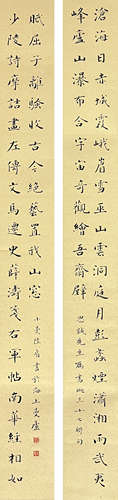 滄海日赤城霞峨眉雪巫山雲洞庭月彭蠡煙瀟湘雨武夷
峰廬山瀑布合宇宙奇觀繪吾齋壁
少陵詩摩詰畫左傳文馬遷史薛濤箋右軍帖南華經相如
賦屈子離騷收古今絕藝置我山窗
書於海上